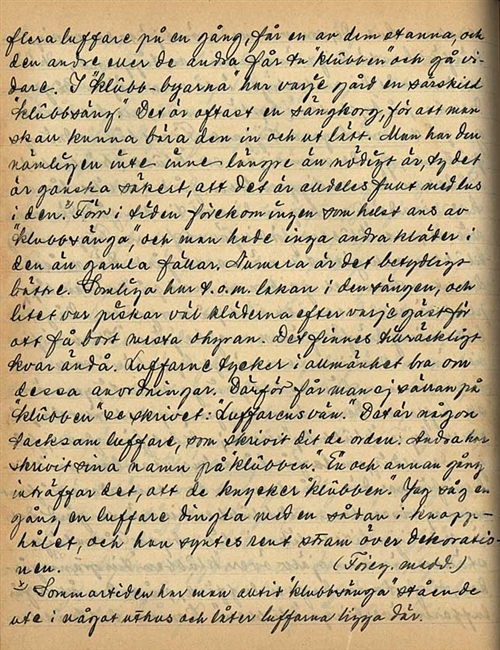 flera luffare på en gång, får en av dem stanna, och
den andre eller de andra får ta "klubben" och gå vi-
dare. I "klubb-byarna" har varje gård en särskild
"klubbsäng". Det är oftast en sängkorg, för att man
skall kunna bära den in och ut lätt. Man har den
nämligen inte inne längre än nödigt är, ty det
är ganska säkert, att det är alldeles fullt med lus
i den.x Förr i tiden förekom ingen som helst ans av
"klubbsänga", och man hade inga andra kläder i
den än gamla fällar. Numera är det betydligt
bättre. Somliga har t.o.m. lakan i den sängen, och
litet var piskar väl kläderna efter varje gäst för
att få bort mesta ohyran. Det finnes tillräckligt
kvar ändå. Luffarne tycker i allmänhet bra om
dessa anordningar. Därför får man ej sällan på
"klubben" se skrivet: "Luffarens vän." Det är någon
tacksam luffare, som skrivit dit de orden. Andra har
skrivit sina namn på "klubben." En och annan gång
inträffar det, att de knycker "klubben." Jag såg en
gång, en luffare dingla med en sådan i knapp-
hålet, och han syntes rent stram över dekoratio-
nen. (Föreg. medd.)
x Sommartiden har man alltid "klubbsänga" stående
ute i något uthus och låter luffarna ligga där.